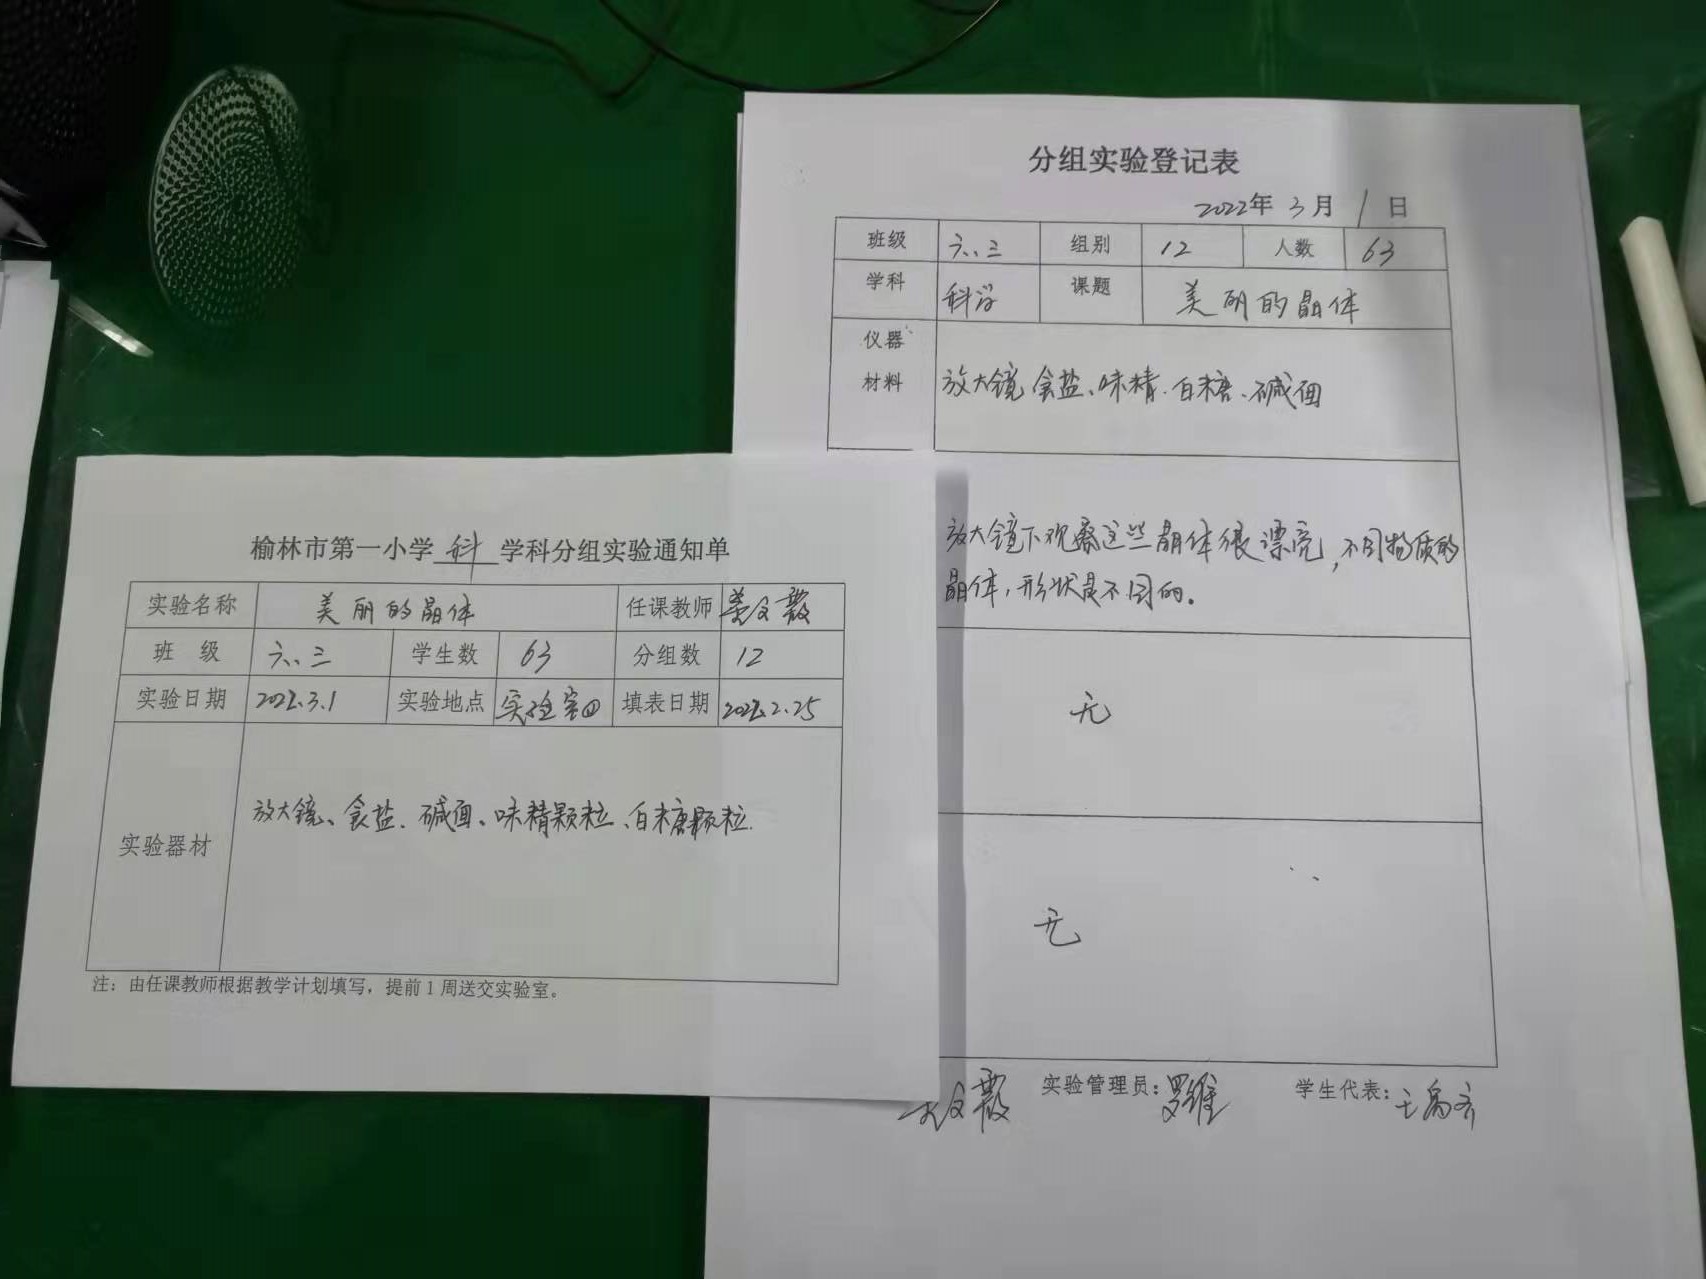 分组实验登记表
2022年 3月 1日
班级 六.三 组别 12 人数 63
学科 科学 课题 美丽的晶体
仪器
材料 放大镜 食盐、味精、白糖、碱面
放大镜下观察这些晶体很漂亮，不同物质的
晶体，形状是不同的。
无
无
实验管理员：罗维 学生代表：
榆林市第一小学 科 学科分组实验通知单
实验名称 美丽的晶体 任课教师
班 级 六.三 学生数 63 分组数 12
实验日期 2022.3.1 实验地点 实验室四 填表日期 2022.2.25
实验器材 放大镜、食盐、碱面、味精颗粒、白糖颗粒.
注：由任课教师根据教学计划填写，提前1周送交实验室。